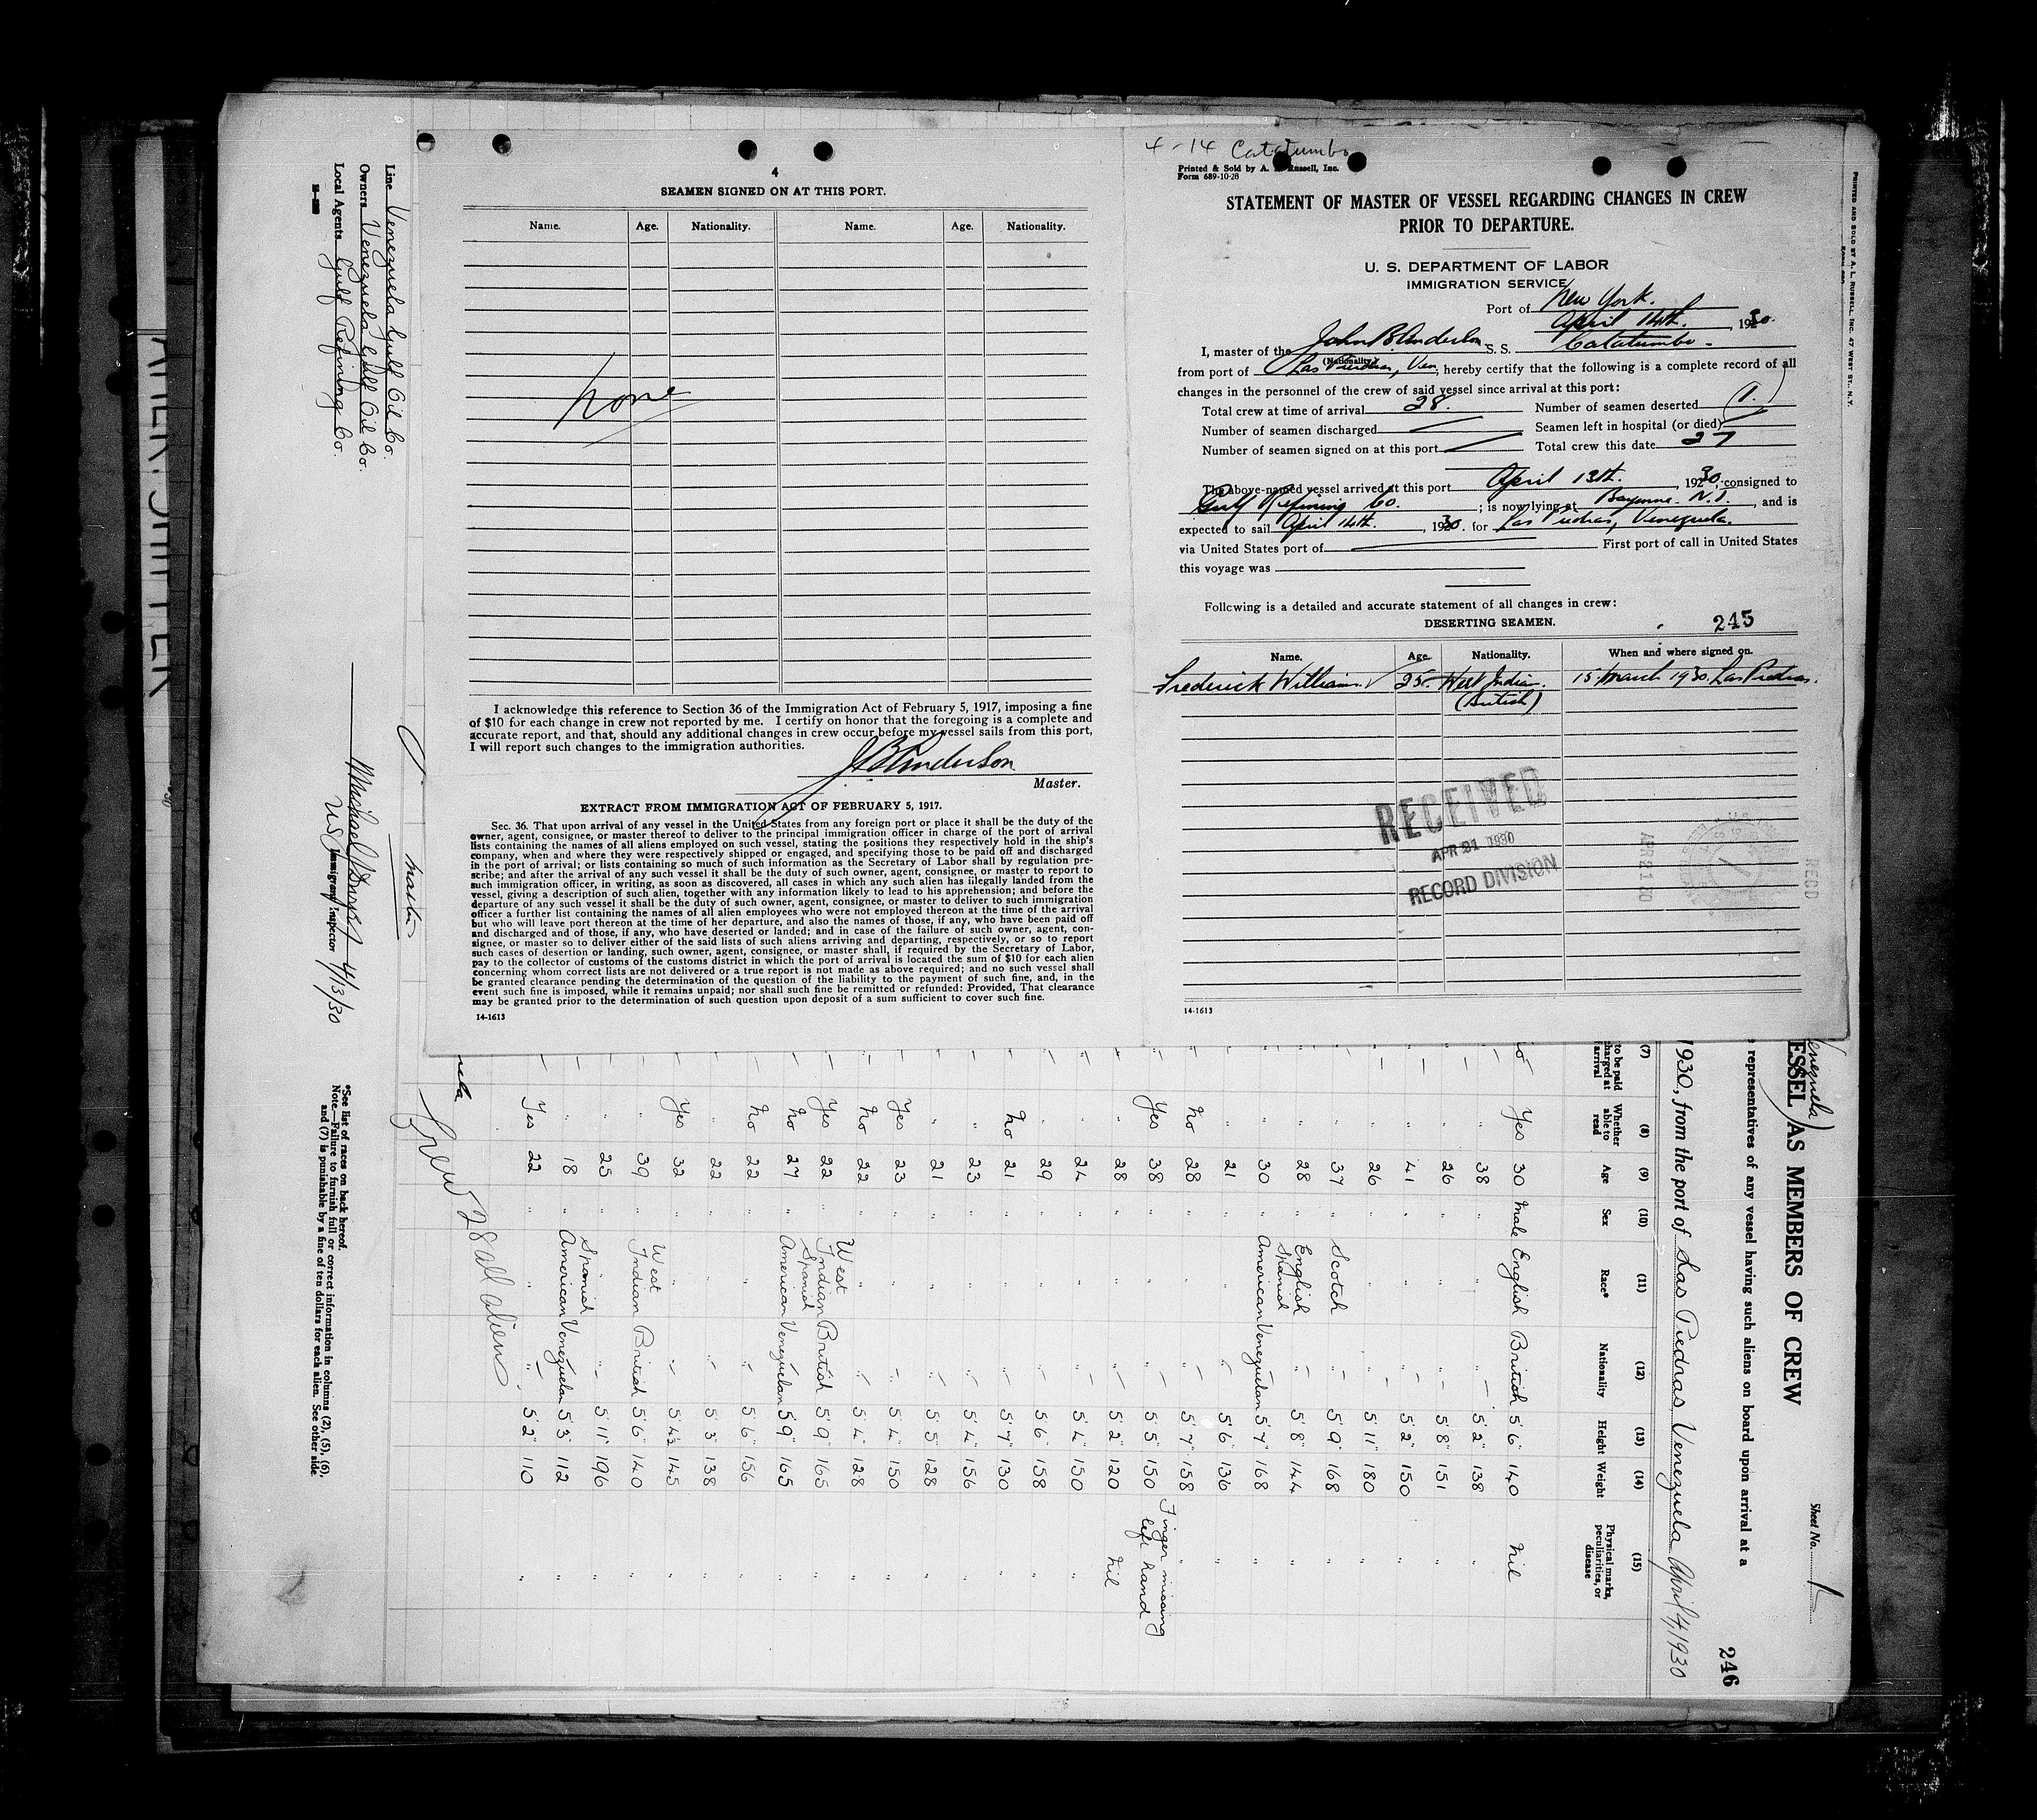 4
SEAMEN SIGNED ON AT THIS PORT.
Name. Age. Nationality. Name. Age. Nationality.
None
I acknowledge this reference to Section 36 of the Immigration Act of February 5, 1917, imposing a fine
of $10 for each change in crew not reported by me. I certify on honor that the foregoing is a complete and
accurate report, and that, should any additional changes in crew occur before my vessel sails from this port,
I will report such changes to the immigration authorities.
J B Anderson
Master.
EXTRACT FROM IMMIGRATION ACT OF FEBRUARY 5, 1917.
Sec. 36. That upon arrival of any vessel in the United States from any foreign port or place it shall be the duty of the
owner, agent, consignee, or master thereof to deliver to the principal immigration officer in charge of the port of arrival
lists containing the names of all aliens employed on such vessel, stating the positions they respectively hold in the ship's
company, when and where they were respectively shipped or engaged, and specifying those to be paid off and discharged
in the port of arrival; or lists containing so much of such information as the Secretary of Labor shall by regulation pre-
scribe; and after the arrival of any such vessel it shall be the duty of such owner, agent, consignee, or master to report to
such immigration officer, in writing, as soon as discovered, all cases in which any such alien has illegally landed from the
vessel, giving a description of such alien, together with any information likely to lead to his apprehension; and before the
departure of any such vessel it shall be the duty of such owner, agent, consignee, or master to deliver to such immigration
officer a further list containing the names of all alien employees who were not employed thereon at the time of the arrival
but who will leave port thereon at the time of her departure, and also the names of those, if any, who have been paid off
and discharged and of those, if any, who have deserted or landed; and in case of the failure of such owner, agent, con-
signee, or master so to deliver either of the said lists of such aliens arriving and departing, respectively, or so to report
such cases of desertion or landing, such owner, agent, consignee, or master shall, if required by the Secretary of Labor,
pay to the collector of customs of the customs district in which the port of arrival is located the sum of $10 for each alien
concerning whom correct lists are not delivered or a true report is not made as above required; and no such vessel shall
be granted clearance pending the determination of the question of the liability to the payment of such fine, and, in the
event such fine is imposed, while it remains unpaid; nor shall such fine be remitted or refunded: Provided, That clearance
may be granted prior to the determination of such question upon deposit of a sum sufficient to cover such fine.
14-1613
4-14 Catatumbo
Printed & Sold by A. L. Russell, Inc.
Form 689-10-28
STATEMENT OF MASTER OF VESSEL REGARDING CHANGES IN CREW
PRIOR TO DEPARTURE.
U. S. DEPARTMENT OF LABOR
IMMIGRATION SERVICE
Port of New York.
April 14th. , 1930.
I, master of the John B Anderson S. S. Catatumbo.
(Nationality)
from port of Las Piedras, Ven, hereby certify that the following is a complete record of all
changes in the personnel of the crew of said vessel since arrival at this port:
Total crew at time of arrival 28. Number of seamen deserted (1.)
Number of seamen discharged Seamen left in hospital (or died)
Number of seamen signed on at this port Total crew this date 27
The above-named vessel arrived at this port April 13th. , 1930, consigned to
Gulf Refining Co. ; is now lying at Bayonne. N.J. , and is
expected to sail April 14th. , 1930. for Las Piedras, Venezuela.
via United States port of First port of call in United States
this voyage was
Following is a detailed and accurate statement of all changes in crew:
DESERTING SEAMEN. 245
Name. Age. Nationality. When and where signed on.
Frederick William. 25. West Indian. 15. March 1930. Las Piedras.
(British)
RECEIVED
APR 21 1930
RECORD DIVISION
APR 21 30
RECD
14-1613
PRINTED AND SOLD BY A. L. RUSSELL, INC. 47 WEST ST., N.Y.
Sheet No. 1
246
Venezuela)
ESSEL AS MEMBERS OF CREW
representatives of any vessel having such aliens on board upon arrival at a
1930, from the port of Las Piedras, Venezuela April 4, 1930
(7) (8) (9) (10) (11) (12) (13) (14) (15)
to be paid
charged at
arrival
Whether able to read
Age
Sex
Race*
Nationality
Height
Weight
Physical marks, peculiarities, or disease
no Yes 30 Male English British 5'6" 140 Nil
" 38 " " " 5'2" 138 "
" 26 " " " 5'8" 151 "
" 41 " " " 5'2" 150 "
" 26 " " " 5'11" 180 "
" 37 " Scotch " 5'9" 168 "
" 28 " English " 5'8" 144 "
" 30 " Spanish American Venezuelan 5'7" 168 "
" 21 " " " 5'6" 136 "
No 28 " " " 5'7" 158 "
Yes 38 " " " 5'5" 150 Finger missing left hand
" 28 " " " 5'2" 120 Nil
" 24 " " " 5'4" 150 "
" 29 " " " 5'6" 158 "
No 21 " " " 5'7" 130 "
" 23 " " " 5'4" 156 "
" 21 " " " 5'5" 128 "
Yes 23 " " " 5'4" 150 "
No 22 " " " 5'4" 128 "
Yes 22 " West Indian British 5'9" 165 "
No 27 " Spanish American Venezuelan 5'9" 165 "
No 22 " " " 5'6" 156 "
" 22 " " " 5'3" 138 "
Yes 32 " " " 5'4½ 145 "
" 39 " West Indian British 5'6" 140 "
" 25 " " " 5'11" 196 "
" 18 " Spanish American Venezuelan 5'3" 112 "
Yes 22 " " " 5'2" 110 "
Crew 28 all aliens
Master
Line Venezuela Gulf Oil Co.
Owners Venezuela Gulf Oil Co.
Local Agents Gulf Refining Co.
Michael 4/13/30
US Immigrant Inspector
*See list of races on back hereof.
Note.—Failure to furnish full or correct information in columns (2), (5), (6),
and (7) is punishable by a fine of ten dollars for each alien. See other side.